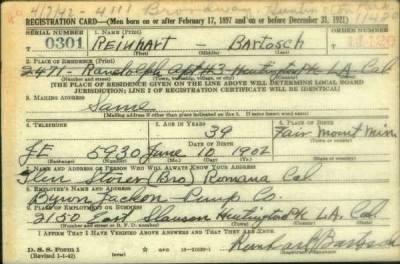 REGISTRATION CARD—(Men born on or after February 17, 1897 and on or before December 31, 1921)
SERIAL NUMBER 1. NAME (Print) ORDER NUMBER
T 0301 Reinhart - Bartosch T
(First) (Middle) (Last)
2. PLACE OF RESIDENCE (Print)
2471 - Randolph Apt #3 - Huntington Pk L.A. Cal
(Number and street) (Town, township, village, or city) (County) (State)
[THE PLACE OF RESIDENCE GIVEN ON THE LINE ABOVE WILL DETERMINE LOCAL BOARD
JURISDICTION; LINE 2 OF REGISTRATION CERTIFICATE WILL BE IDENTICAL]
3. MAILING ADDRESS
Same
[Mailing address if other than place indicated on line 2. If same insert word same]
4. TELEPHONE 5. AGE IN YEARS 6. PLACE OF BIRTH
39 Fair Mount
DATE OF BIRTH (Town or county)
JE 5930 June 10 1902 Min
(Exchange) (Number) (Mo.) (Day) (Yr.) (State or country)
7. NAME AND ADDRESS OF PERSON WHO WILL ALWAYS KNOW YOUR ADDRESS
(Bro) Romana Cal
8. EMPLOYER'S NAME AND ADDRESS
Byron Jackson Pump Co.
9. PLACE OF EMPLOYMENT OR BUSINESS
2150 East Slauson Huntington Pk L.A. Cal
(Number and street or R. F. D. number) (Town) (County) (State)
I AFFIRM THAT I HAVE VERIFIED ABOVE ANSWERS AND THAT THEY ARE TRUE.
D. S. S. Form 1
(Revised 1-1-42) (over) Reinhart Bartosch
(Registrant's signature)